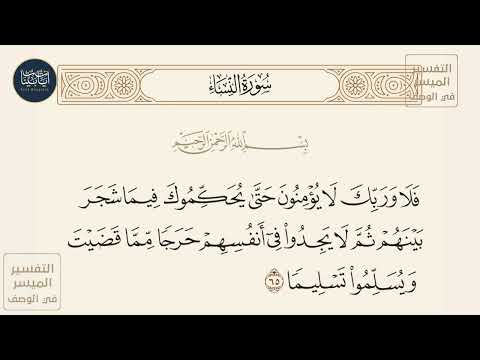 آيات بينات
سُورَةُ النِّسَاءِ
التفسير
الميسر
في الوصف
بِسْمِ اللَّهِ الرَّحْمَٰنِ الرَّحِيمِ
فَلَا وَرَبِّكَ لَا يُؤْمِنُونَ حَتَّىٰ يُحَكِّمُوكَ فِيمَا شَجَرَ
بَيْنَهُمْ ثُمَّ لَا يَجِدُوا۟ فِىٓ أَنفُسِهِمْ حَرَجًا مِّمَّا قَضَيْتَ
وَيُسَلِّمُوا۟ تَسْلِيمًا ٦٥
التفسير
الميسر
في الوصف